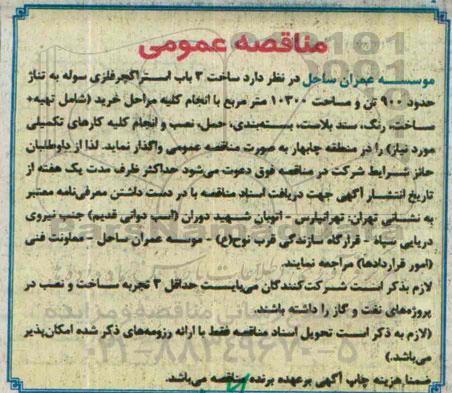 مناقصه عمومی
موسسه عمران ساحل در نظر دارد ساخت ۳ باب استراکچرفلزی سوله به تناژ
حدود ۹۰۰ تن و مساحت ۱۰۳۰۰ متر مربع با انجام کلیه مراحل خرید (شامل تهیه،
ساخت، رنگ، سند بلاست، بسته‌بندی، حمل، نصب و انجام کلیه کارهای تکمیلی
مورد نیاز) را در منطقه چابهار به صورت مناقصه عمومی واگذار نماید. لذا از داوطلبان
حائز شرایط شرکت در مناقصه فوق دعوت می‌شود حداکثر ظرف مدت یک هفته از
تاریخ انتشار آگهی جهت دریافت اسناد مناقصه با در دست داشتن معرفی‌نامه معتبر
به نشانی تهران، تهرانپارس - اتوبان شهید دوران (اسب دوانی قدیم) جنب نیروی
دریایی سپاه - قرارگاه سازندگی قرب نوح(ع) - موسسه عمران ساحل - معاونت فنی
(امور قراردادها) مراجعه نمایند.
لازم بذکر است شرکت‌کنندگان می‌بایست حداقل ۳ تجربه ساخت و نصب در
پروژه‌های نفت و گاز را داشته باشند.
(لازم به ذکر است تحویل اسناد مناقصه فقط با ارائه رزومه‌های ذکر شده امکان‌پذیر
می‌باشد.)
ضمنا هزینه چاپ آگهی برعهده برنده مناقصه می‌باشد.
۰۲۱-۸۸۳۴۹۶۷۰-۵